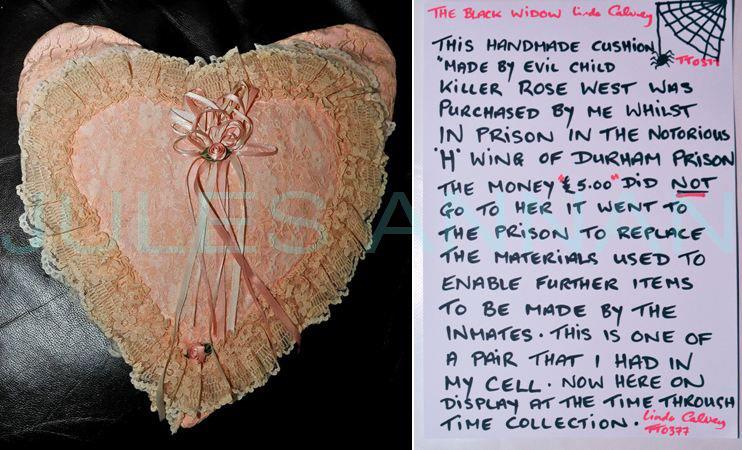 THE BLACK WIDOW Linda Calvey
THIS HANDMADE CUSHION
TT0377
"MADE BY EVIL CHILD
KILLER ROSE WEST WAS
PURCHASED BY ME WHILST
IN PRISON IN THE NOTORIOUS
"H" WING OF DURHAM PRISON
THE MONEY "£5.00" DID NOT
GO TO HER IT WENT TO
THE PRISON TO REPLACE
THE MATERIALS USED TO
ENABLE FURTHER ITEMS
TO BE MADE BY THE
INMATES. THIS IS ONE OF
A PAIR THAT I HAD IN
MY CELL. NOW HERE ON
DISPLAY AT THE TIME THROUGH
TIME COLLECTION. Linda Calvey
TT0377
JULES ANNAN